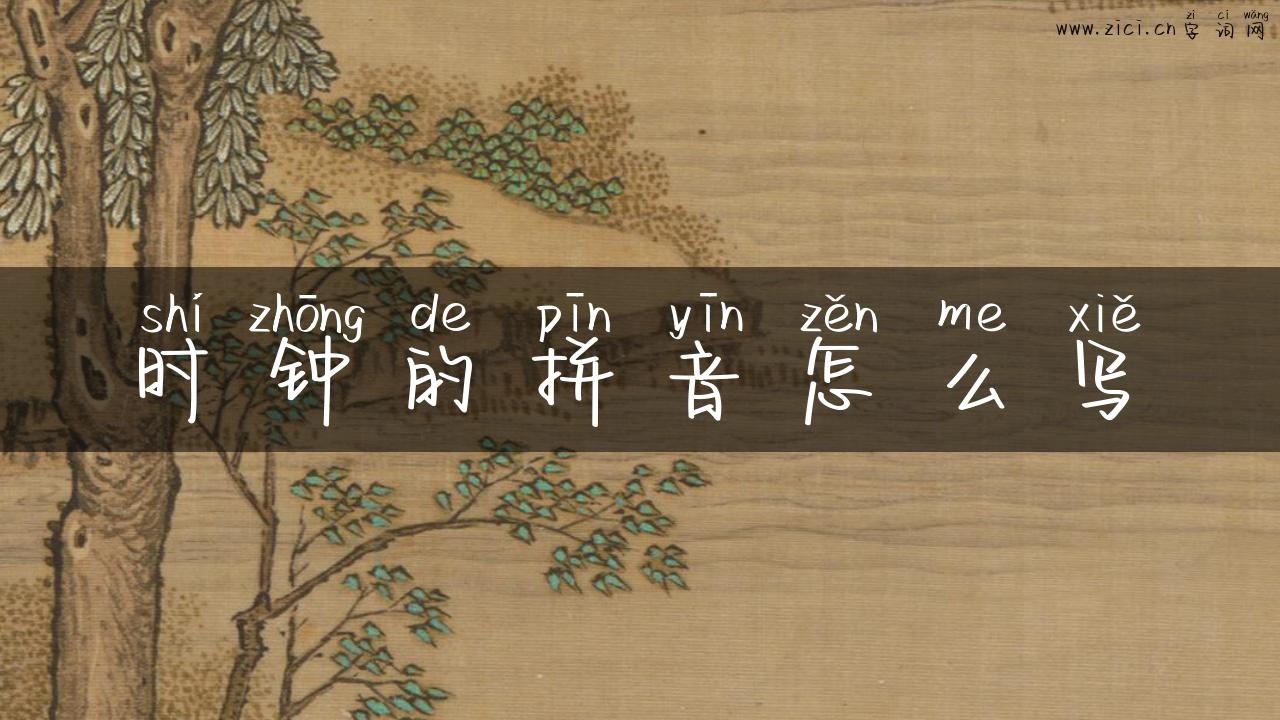 zì cí wǎng
www.zici.cn 字词网
shí zhōng de pīn yīn zěn me xiě
时钟的拼音怎么写